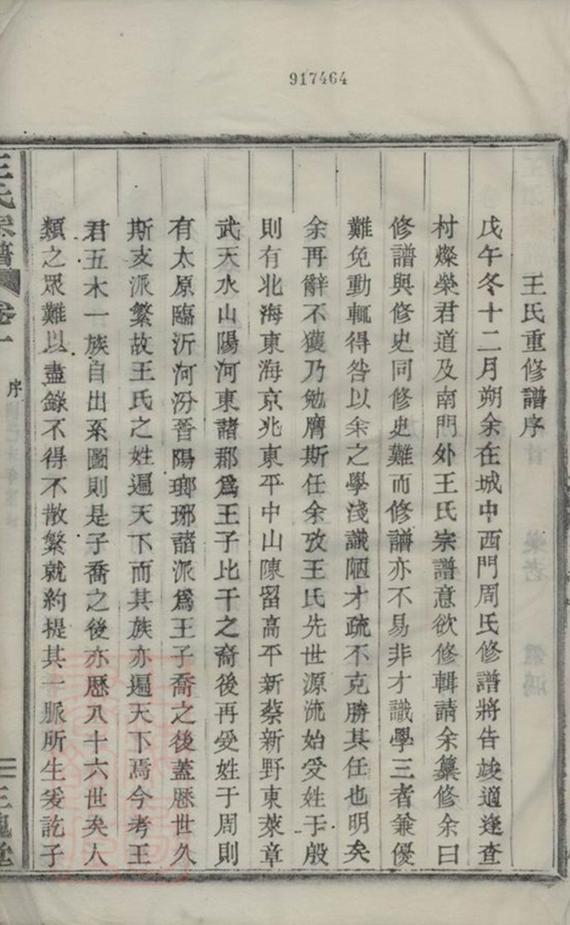 917464
王氏重修譜序
戊午冬十二月朔余在城中西門周氏修譜將告竣適逢查
村燦榮君道及南門外王氏宗譜意欲修輯請余纂修余曰
修譜與修史同修史難而修譜亦不易非才識學三者兼優
難免動輒得咎以余之學淺識陋才疏不克勝其任也明矣
余再辭不獲乃勉膺斯任余攷王氏先世源流始受姓于殷
則有北海東海京兆東平中山陳留高平新蔡新野東萊章
武天水山陽河東諸郡爲王子比干之裔後再受姓于周則
有太原臨沂河汾晉陽瑯琊諸派爲王子喬之後蓋歷世久
斯支派繁故王氏之姓遍天下而其族亦遍天下焉今考王
君五木一族自出系圖則是子喬之後亦歷八十六世矣人
類之眾難以盡錄不得不散繁就約提其一脈所生爰訖子
王氏宗譜 卷一 序 三槐堂